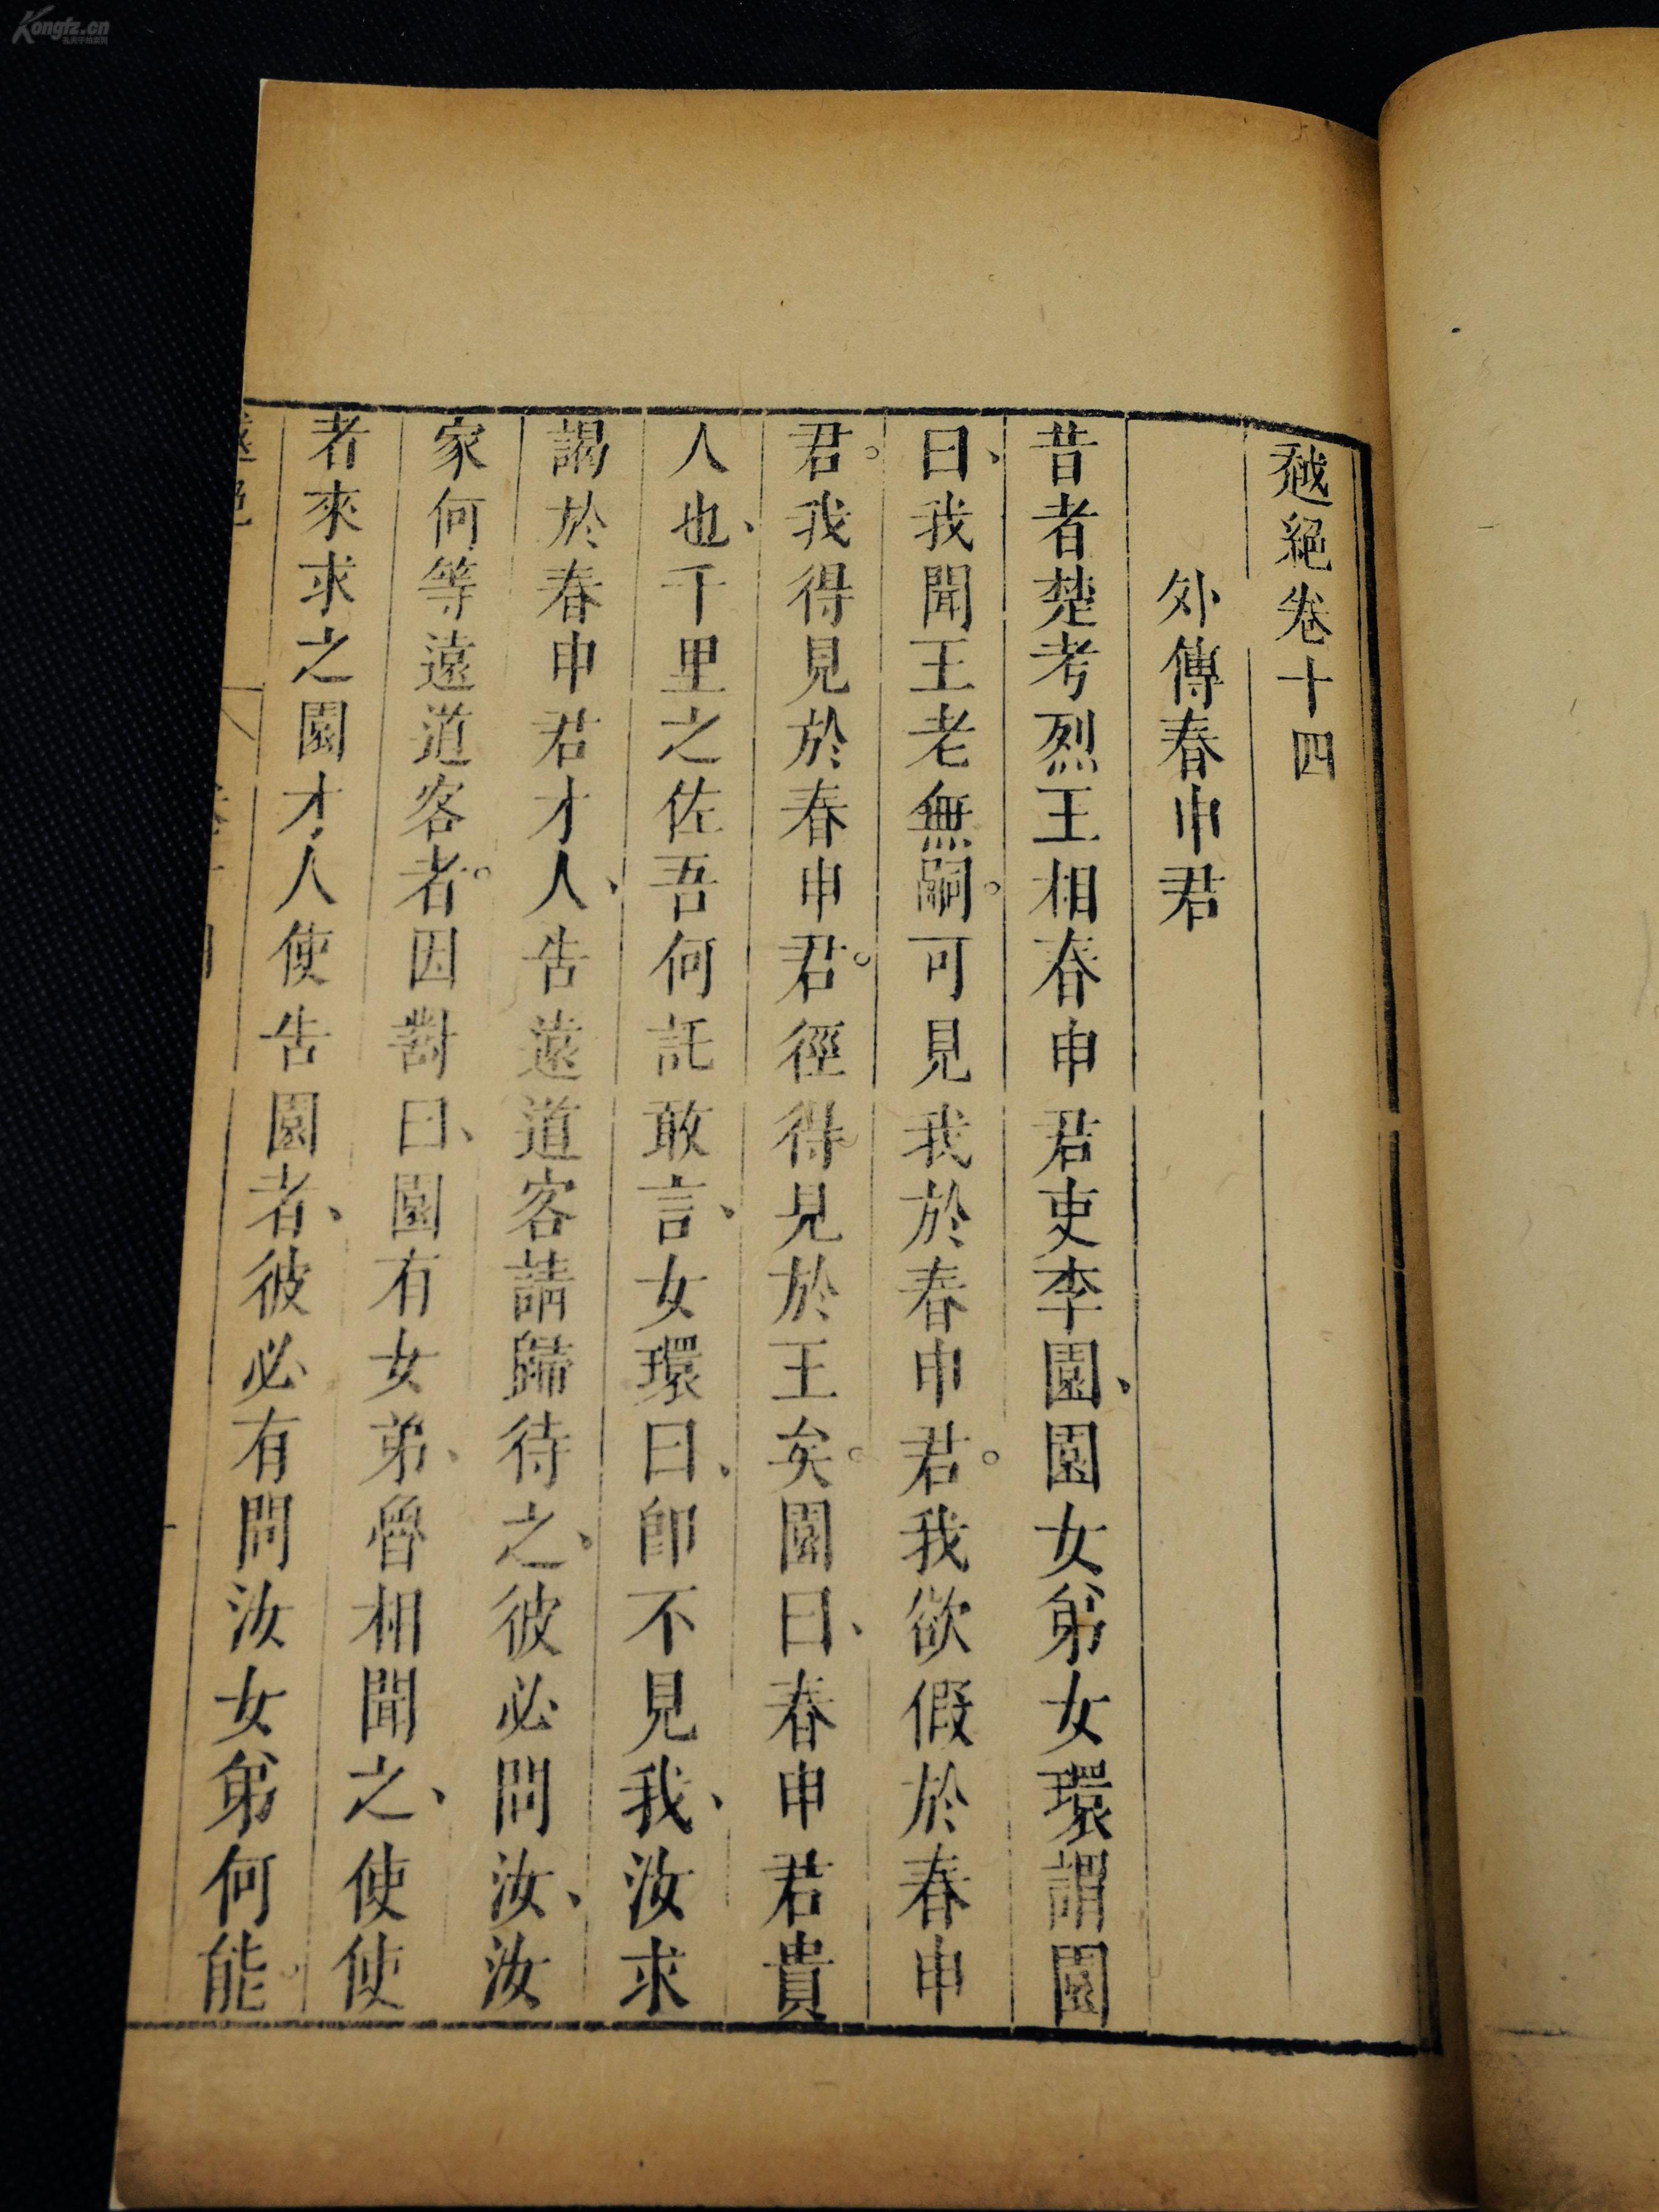 越絕卷十四
外傳春申君
昔者楚考烈王相春申君吏李園、園女弟女環謂園
曰、我聞王老無嗣。可見我於春申君。我欲假於春申
君。我得見於春申君。徑得見於王矣。園曰、春申君貴
人也、千里之佐吾何託敢言、女環曰、卽不見我、汝求
謁於春申君才人、告遠道客請歸待之、彼必問汝、汝
家何等遠道客者。因對曰、園有女弟、魯相聞之、使使
者來求之園才人使告園者、彼必有問汝女弟何能。
越絕
Kongfz.cn